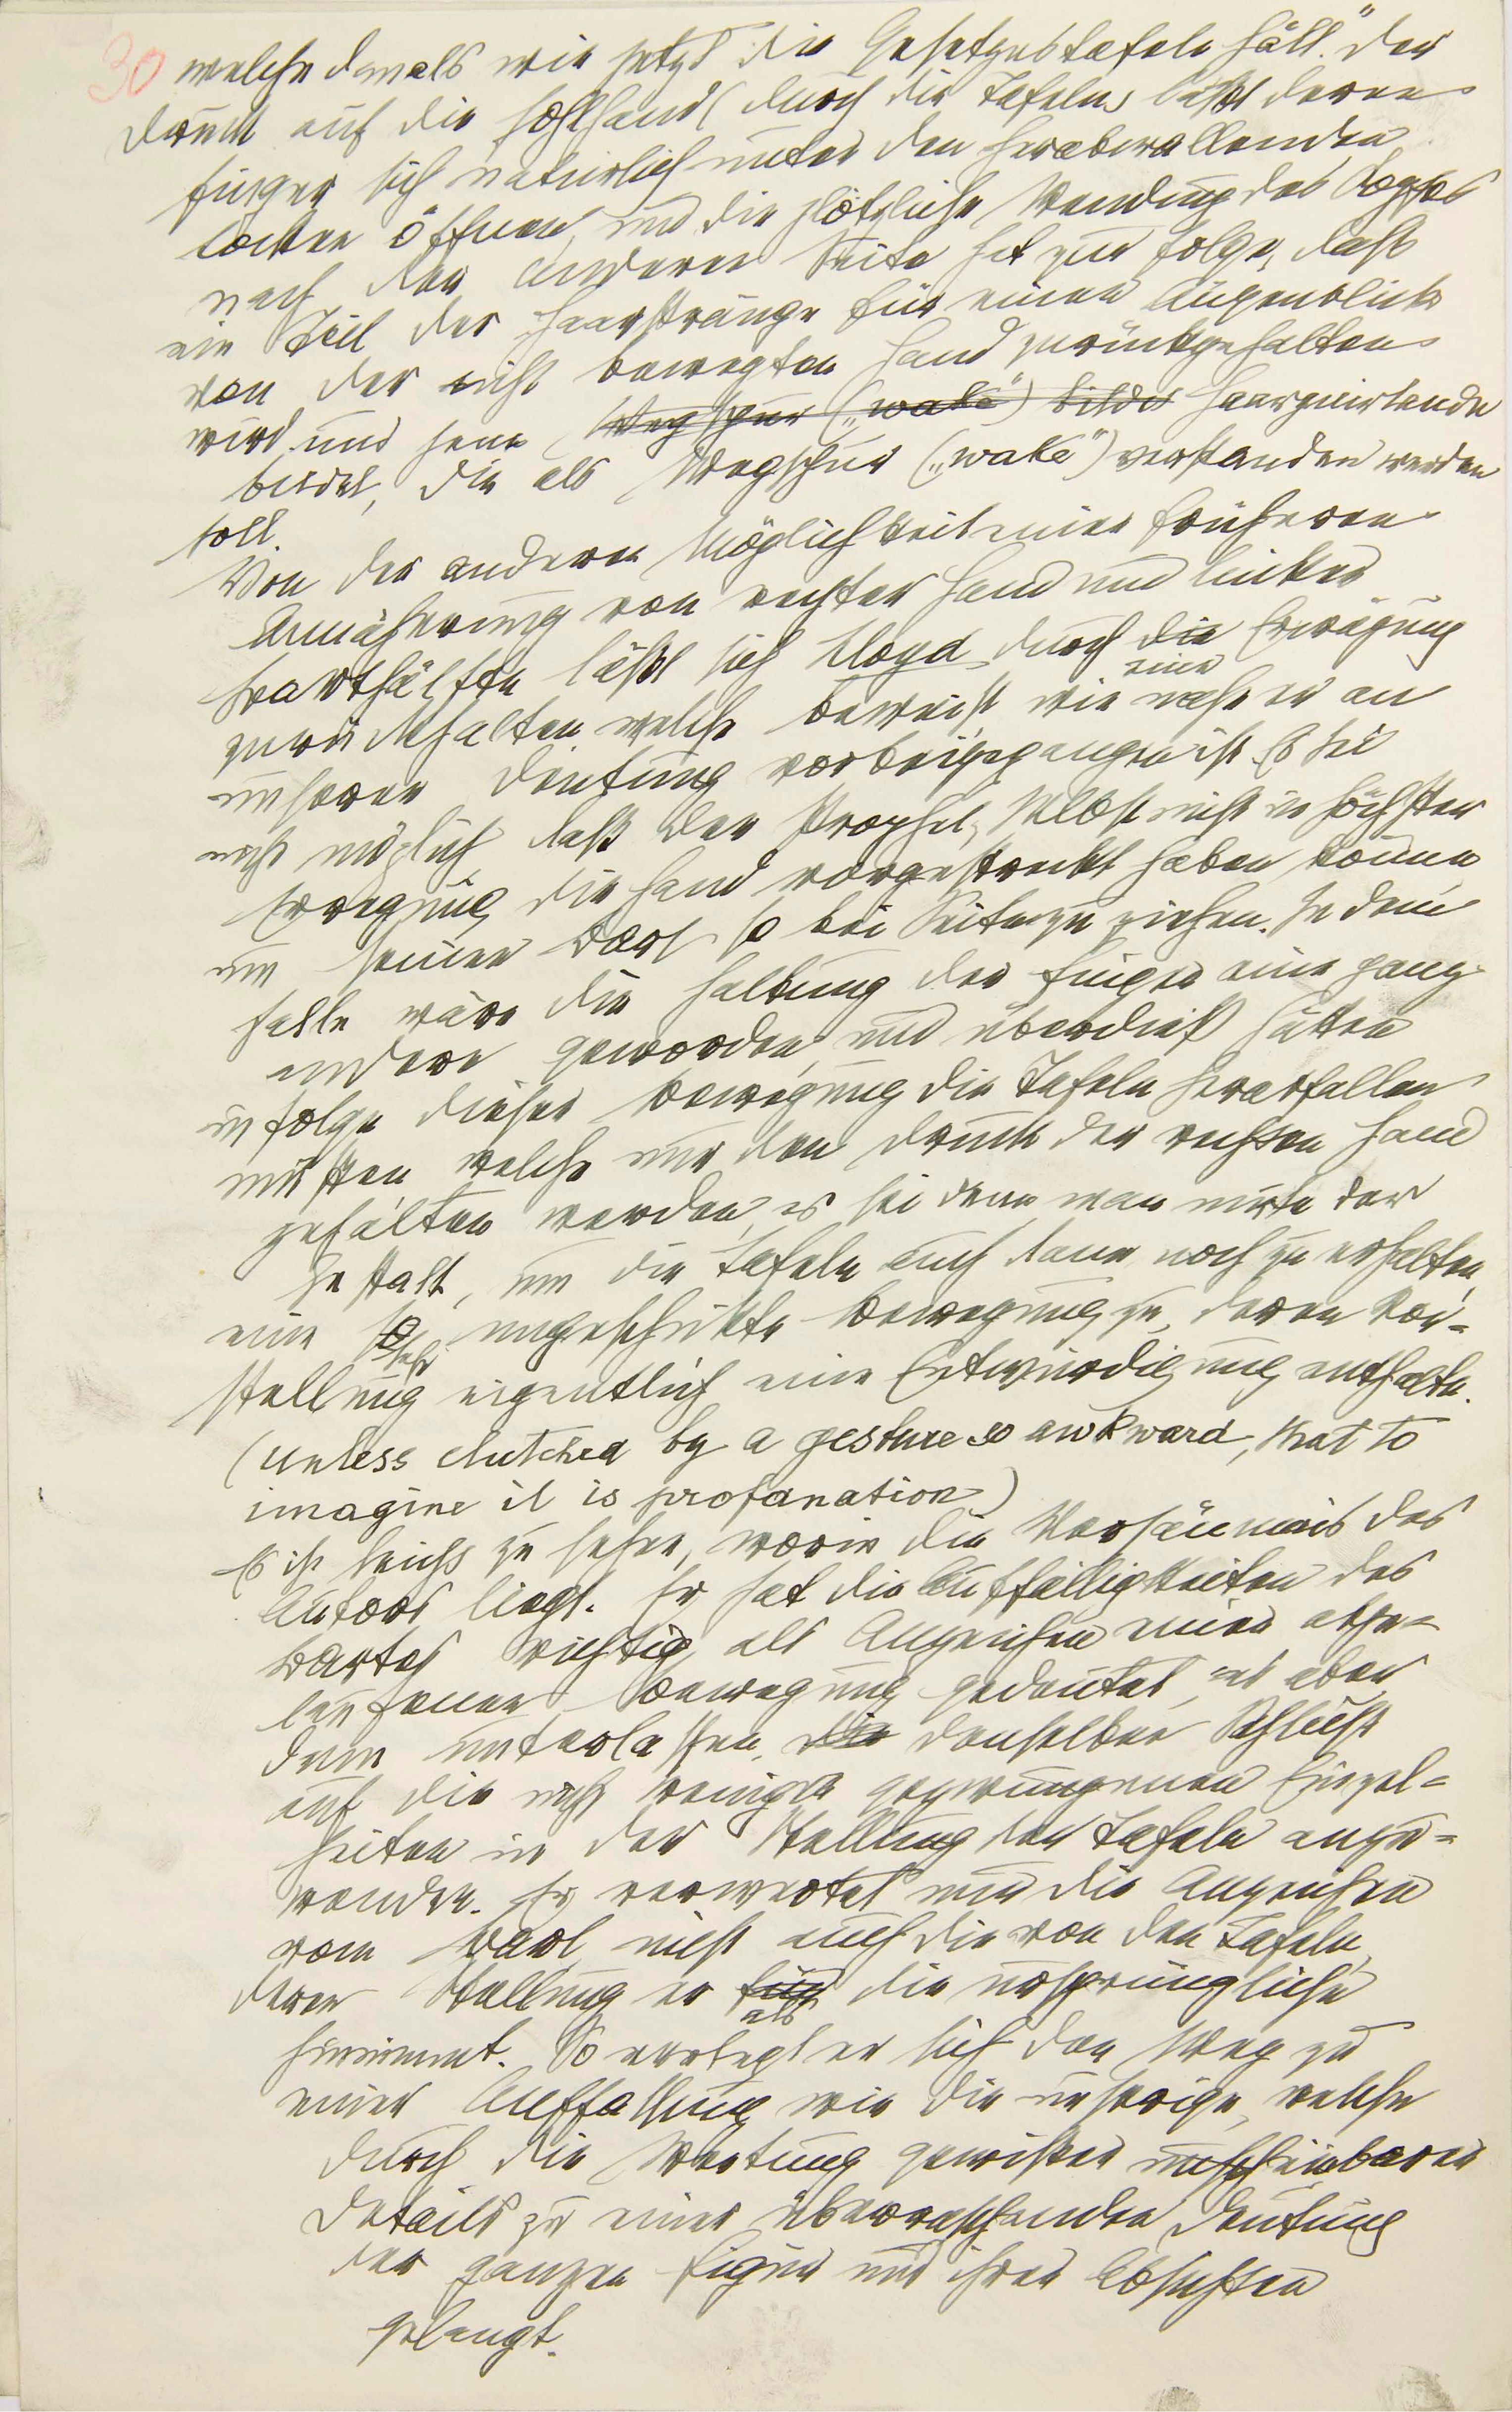 30 welche damals wie jetzt die Gesetzestafeln hält." Der
Druck auf die Hohlhand durch die Tafeln läßt deren
Finger sich natürlich unter den herabwallenden
Locken öffnen, und die plötzliche Wendung des Kopfes
nach der anderen Seite hat zur Folge, daß
ein Teil der Haarstränge für einen Augenblick
von der nicht bewegten Hand zurückgehalten
wird und jene Wegspur („wake") bildet Haarguirlande
bildet, die als Wegspur („wake") verstanden werden
soll.
Von der anderen Möglichkeit einer früheren
Annäherung von rechter Hand und linker
Barthälfte läßt sich Lloyd durch die Erwägung
eine
zurückhalten, welche beweist, wie nahe er an
unserer Deutung vorbeigegangen ist. Es sei
nicht möglich, daß der Prophet, selbst nicht in höchster
Erregung, die Hand vorgestreckt haben könne
um seinen Bart so bei Seite zu ziehen. In dem
Falle wäre die Haltung der Finger eine ganz
andere geworden, und überdies hätten
infolge dieser Bewegung die Tafeln herabfallen
müssen, welche nur vom Druck der rechten Hand
gehalten werden, es sei denn, man mute der
Gestalt, um die Tafeln auch dann noch zu erhalten,
eine so ungeschickte Bewegung zu, deren Vor=
sehr
stellung eigentlich eine Entwürdigung enthalte.
(unless clutched by a gesture so awkward, that to
imagine it is profanation)
Es ist leicht zu sehen, worin die Versäumnis des
Autors liegt. Er hat die Auffälligkeiten des
Bartes richtig als Anzeichen einer abge=
laufenen Bewegung gedeutet, es aber
dann unterlassen, die denselben Schluß
auf die nicht weniger gezwungenen Einzel=
heiten in der Stellung der Tafeln anzu=
wenden. Er verwertet nur die Anzeichen
vom Bart, nicht auch die von den Tafeln,
deren Stellung er für die ursprüngliche
als
hinnimmt. So verlegt er sich den Weg zu
einer Auffassung wie die unsrige, welche
durch die Wertung gewisser unscheinbarer
Details zu einer überraschenden Deutung
der ganzen Figur und ihrer Absichten
gelangt.